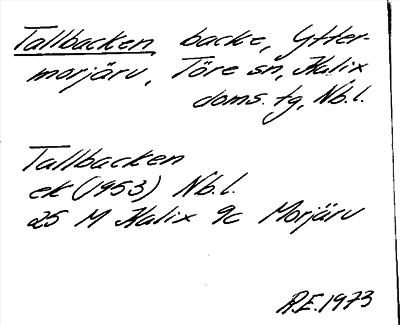 Tallbacken, backe, Ytter-
morjärv, Töre sn, Kalix
doms. tg, Nb.l.
Tallbacken
ek (1953) Nb.l.
25 M Kalix 9c Morjärv
R.E. 1973